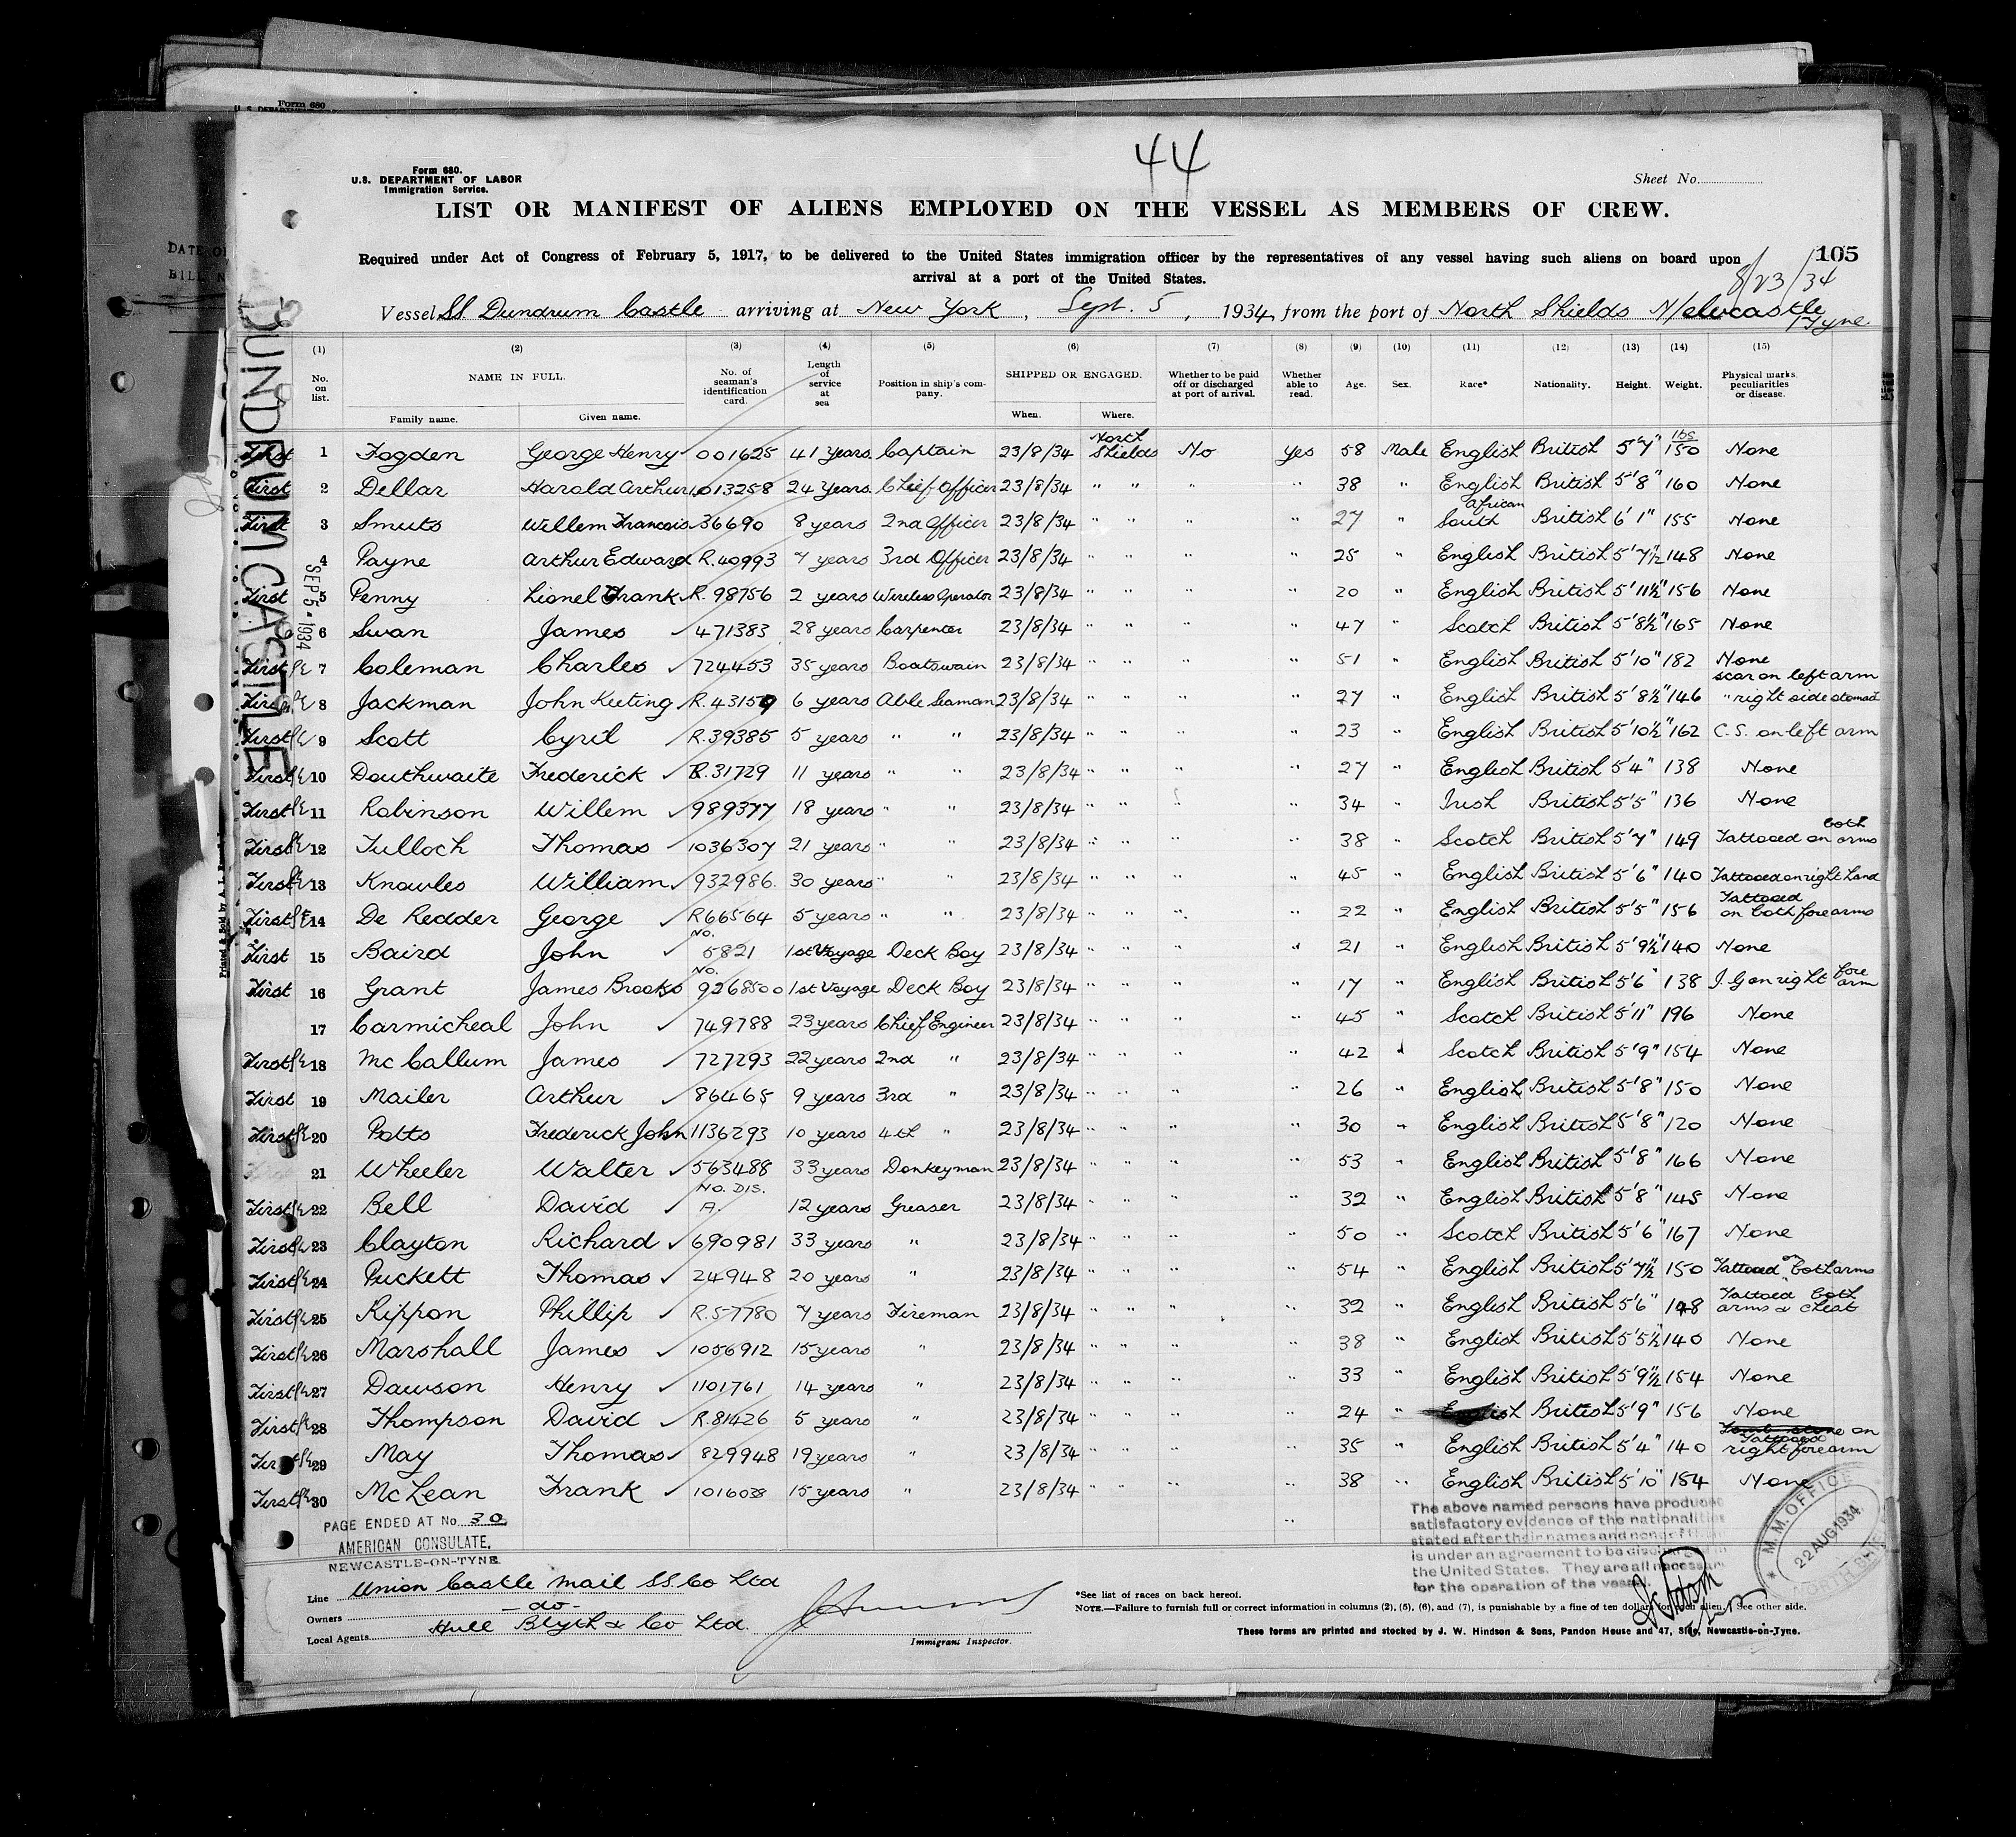 Form 680.
44
Form 680.
U.S. DEPARTMENT OF LABOR
Immigration Service.
Sheet No.
LIST OR MANIFEST OF ALIENS EMPLOYED ON THE VESSEL AS MEMBERS OF CREW.
Required under Act of Congress of February 5, 1917, to be delivered to the United States immigration officer by the representatives of any vessel having such aliens on board upon
arrival at a port of the United States.
105
8/23/34
Vessel SS. Dundrum Castle arriving at New York, Sept. 5, 1934, from the port of North Shields N/ewcastle
/Tyne.
DUNDRUM CASTLE
SEP 5 - 1934
(1) (2) (3) (4) (5) (6) (7) (8) (9) (10) (11) (12) (13) (14) (15)
No. on list. NAME IN FULL. Family name. Given name. No. of seaman's identification card. Length of service at sea Position in ship's company. SHIPPED OR ENGAGED. When. Where. Whether to be paid off or discharged at port of arrival. Whether able to read. Age. Sex. Race* Nationality. Height. Weight. Physical marks, peculiarities or disease.
First 1 Fogden George Henry 001625 41 years Captain 23/8/34 North Shields No Yes 58 Male English British 5'7" lbs 150 None
First 2 Dellar Harold Arthur 1013258 24 years Chief Officer 23/8/34 " " " " 38 " English British 5'8" 160 None
First 3 Smuts Willem Francois 36690 8 years 2nd Officer 23/8/34 " " " " 27 " South African British 6'1" 155 None
4 Payne Arthur Edward R.40993 7 years 3rd Officer 23/8/34 " " " " 25 " English British 5'7½" 148 None
First 5 Penny Lionel Frank R.98756 2 years Wireless Operator 23/8/34 " " " " 20 " English British 5'11½" 156 None
6 Swan James 471383 28 years Carpenter 23/8/34 " " " " 47 " Scotch British 5'8½" 165 None
First 7 Coleman Charles 724453 35 years Boatswain 23/8/34 " " " " 51 " English British 5'10" 182 None
First 8 Jackman John Keeting R.43159 6 years Able Seaman 23/8/34 " " " " 27 " English British 5'8½" 146 scar on left arm " right side stomach
First 9 Scott Cyril R.39385 5 years " " 23/8/34 " " " " 23 " English British 5'10½" 162 C.S. on left arm
First 10 Douthwaite Frederick R.31729 11 years " " 23/8/34 " " " " 27 " English British 5'4" 138 None
First 11 Robinson Willem 989377 18 years " " 23/8/34 " " " " 34 " Irish British 5'5" 136 None
First 12 Tulloch Thomas 1036307 21 years " " 23/8/34 " " " " 38 " Scotch British 5'7" 149 Tattooed on both arms
First 13 Knowles William 932986 30 years " " 23/8/34 " " " " 45 " English British 5'6" 140 Tattooed on right hand
First 14 De Redder George R66564 5 years " " 23/8/34 " " " " 22 " English British 5'5" 156 Tattooed on both forearms
First 15 Baird John No. 5821 1st Voyage Deck Boy 23/8/34 " " " " 21 " English British 5'9½" 140 None
First 16 Grant James Brooks No. 9268500 1st Voyage Deck Boy 23/8/34 " " " " 17 " English British 5'6" 138 J.G on right fore arm
17 Carmicheal John 749788 23 years Chief Engineer 23/8/34 " " " " 45 " Scotch British 5'11" 196 None
First 18 Mc Callum James 727293 22 years 2nd " 23/8/34 " " " " 42 " Scotch British 5'9" 154 None
First 19 Mailer Arthur 86465 9 years 3rd " 23/8/34 " " " " 26 " English British 5'8" 150 None
First 20 Potts Frederick John 1136293 10 years 4th " 23/8/34 " " " " 30 " English British 5'8" 120 None
21 Wheeler Walter 563488 33 years Donkeyman 23/8/34 " " " " 53 " English British 5'8" 166 None
First 22 Bell David NO. DIS. A. 12 years Greaser 23/8/34 " " " " 32 " English British 5'8" 145 None
First 23 Clayton Richard 690981 33 years " 23/8/34 " " " " 50 " Scotch British 5'6" 167 None
First 24 Puckett Thomas 24948 20 years " 23/8/34 " " " " 54 " English British 5'7½" 150 Tattooed on both arms
First 25 Rippon Phillip R.57780 7 years Fireman 23/8/34 " " " " 32 " English British 5'6" 148 Tattoed both arms & chest
First 26 Marshall James 1056912 15 years " 23/8/34 " " " " 38 " English British 5'5½" 140 None
First 27 Dawson Henry 1101761 14 years " 23/8/34 " " " " 33 " English British 5'9½" 154 None
First 28 Thompson David R.81426 5 years " 23/8/34 " " " " 24 " English British 5'9" 156 None
First 29 May Thomas 829948 19 years " 23/8/34 " " " " 35 " English British 5'4" 140 Tomb stone on Tattooed right forearm
First 30 McLean Frank 1016038 15 years " 23/8/34 " " " " 38 " English British 5'10" 154 None
PAGE ENDED AT No. 30
AMERICAN CONSULATE,
NEWCASTLE-ON-TYNE.
The above named persons have produced
satisfactory evidence of the nationalities
stated after their names and none of them
is under an agreement to be discharged in
the United States. They are all necessary
for the operation of the vessel.
M.M. OFFICE
22 AUG 1934
Line Union Castle Mail SS. Co Ltd
Owners - do -
Local Agents Hull Blyth & Co Ltd.
Immigrant Inspector.
*See list of races on back hereof.
NOTE.—Failure to furnish full or correct information in columns (2), (5), (6), and (7), is punishable by a fine of ten dollars for each alien. See other side.
These forms are printed and stocked by J. W. Hindson & Sons, Pandon House and 47, Side, Newcastle-on-Tyne.